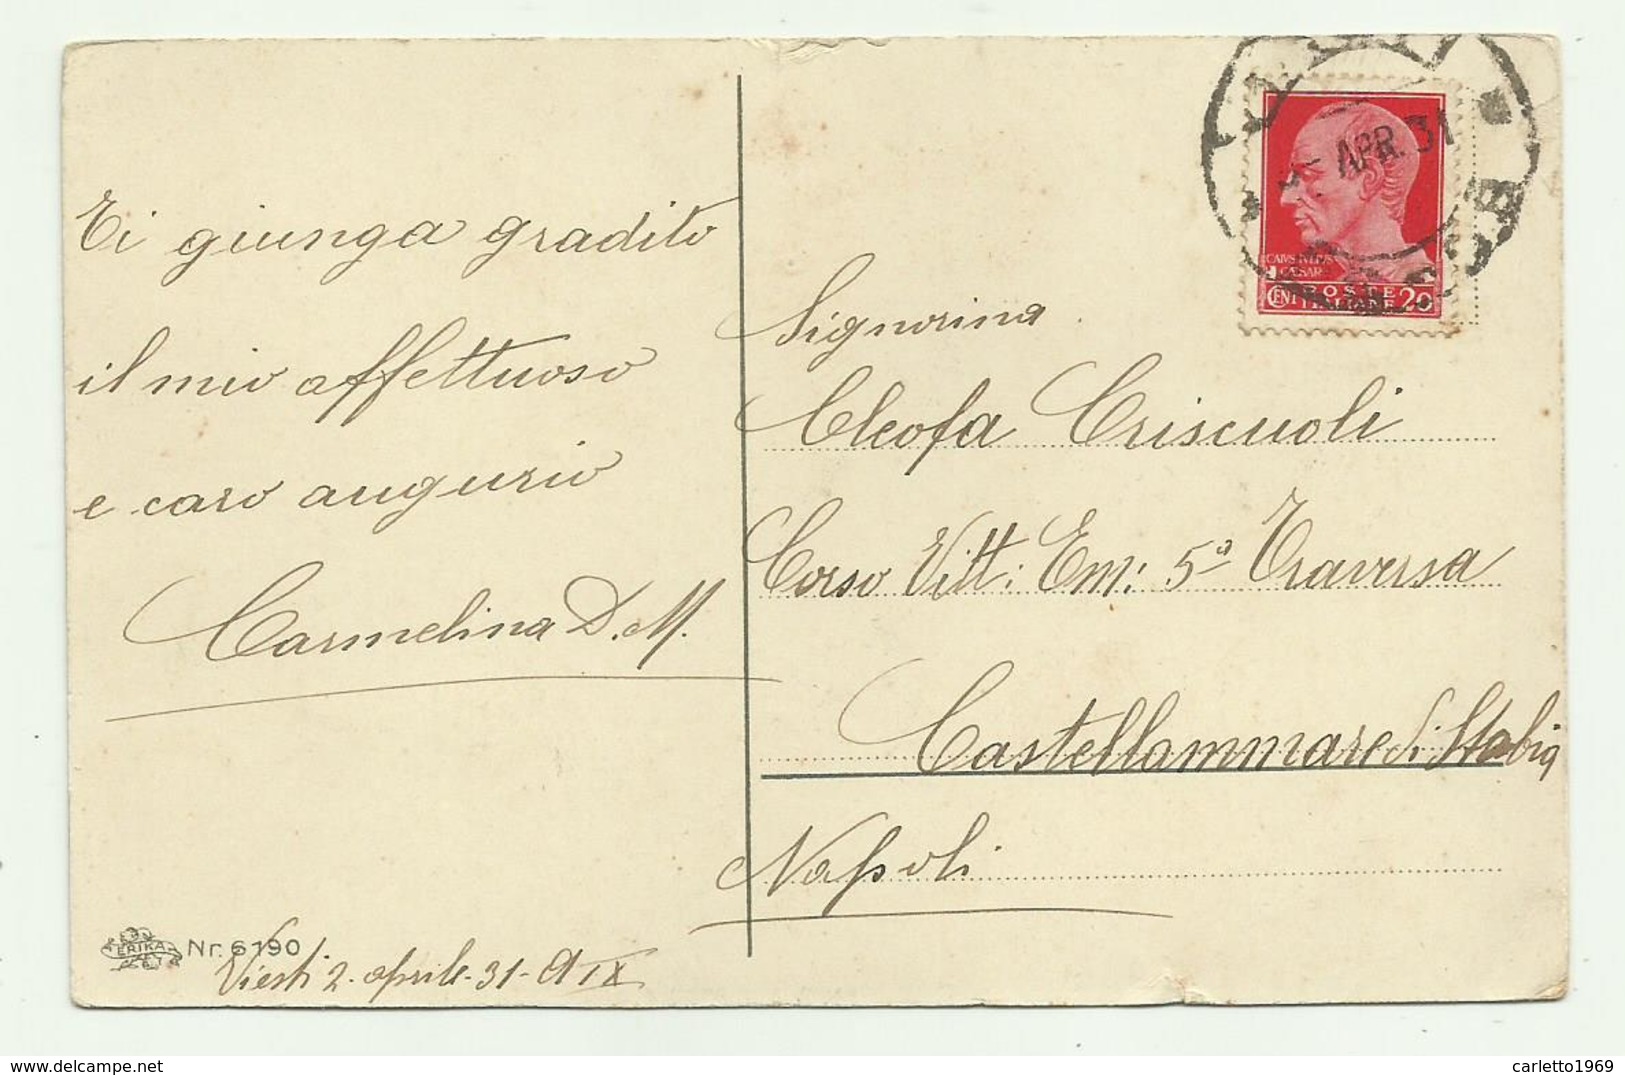 Ti giunga gradito
il mio affettuoso
e caro augurio
Carmelina D. M.
ERIKA
Nr. 6190
Viesti 2. aprile. 31 - A IX
APR. 31
CAIVS IVLIVS
CAESAR
POSTE
CENT ITALIANE 20
Signorina
Cleofa Criscuoli
Corso Vitt: Em: 5ª Traversa
Castellammare di Stabia
Napoli
carletto1969